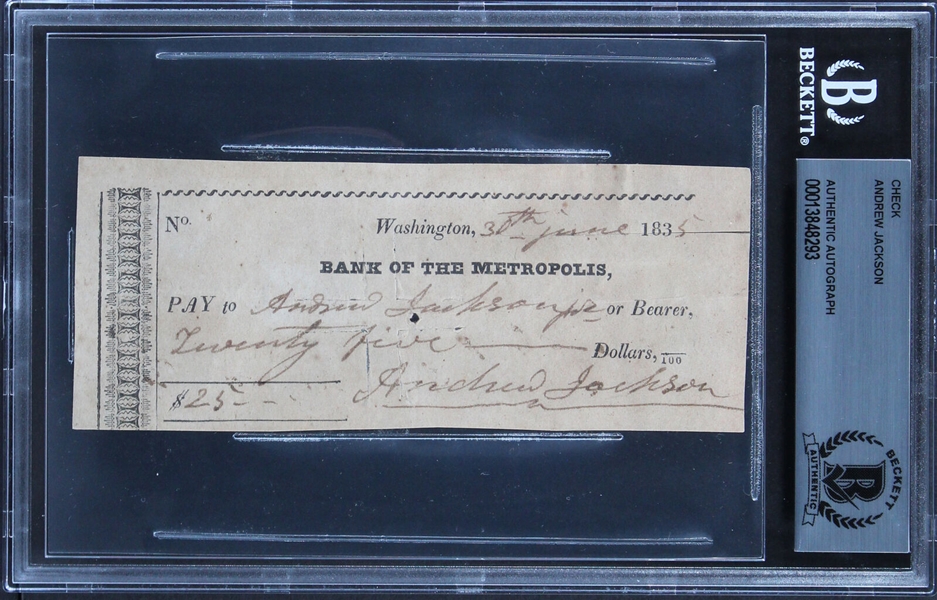 No. Washington, 30th june 1835
BANK OF THE METROPOLIS,
PAY to Andrew Jackson jr or Bearer,
Twenty five Dollars, /100
$25 Andrew Jackson
B
BECKETT®
CHECK
ANDREW JACKSON
AUTHENTIC AUTOGRAPH
00013848293
BECKETT
AUTHENTIC